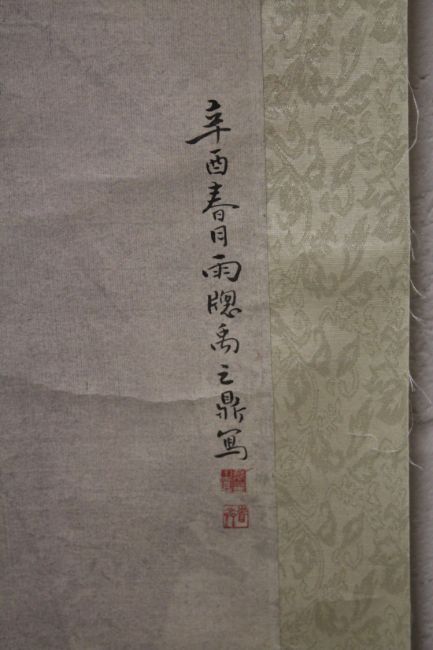 辛酉春日雨牕禹之鼎寫